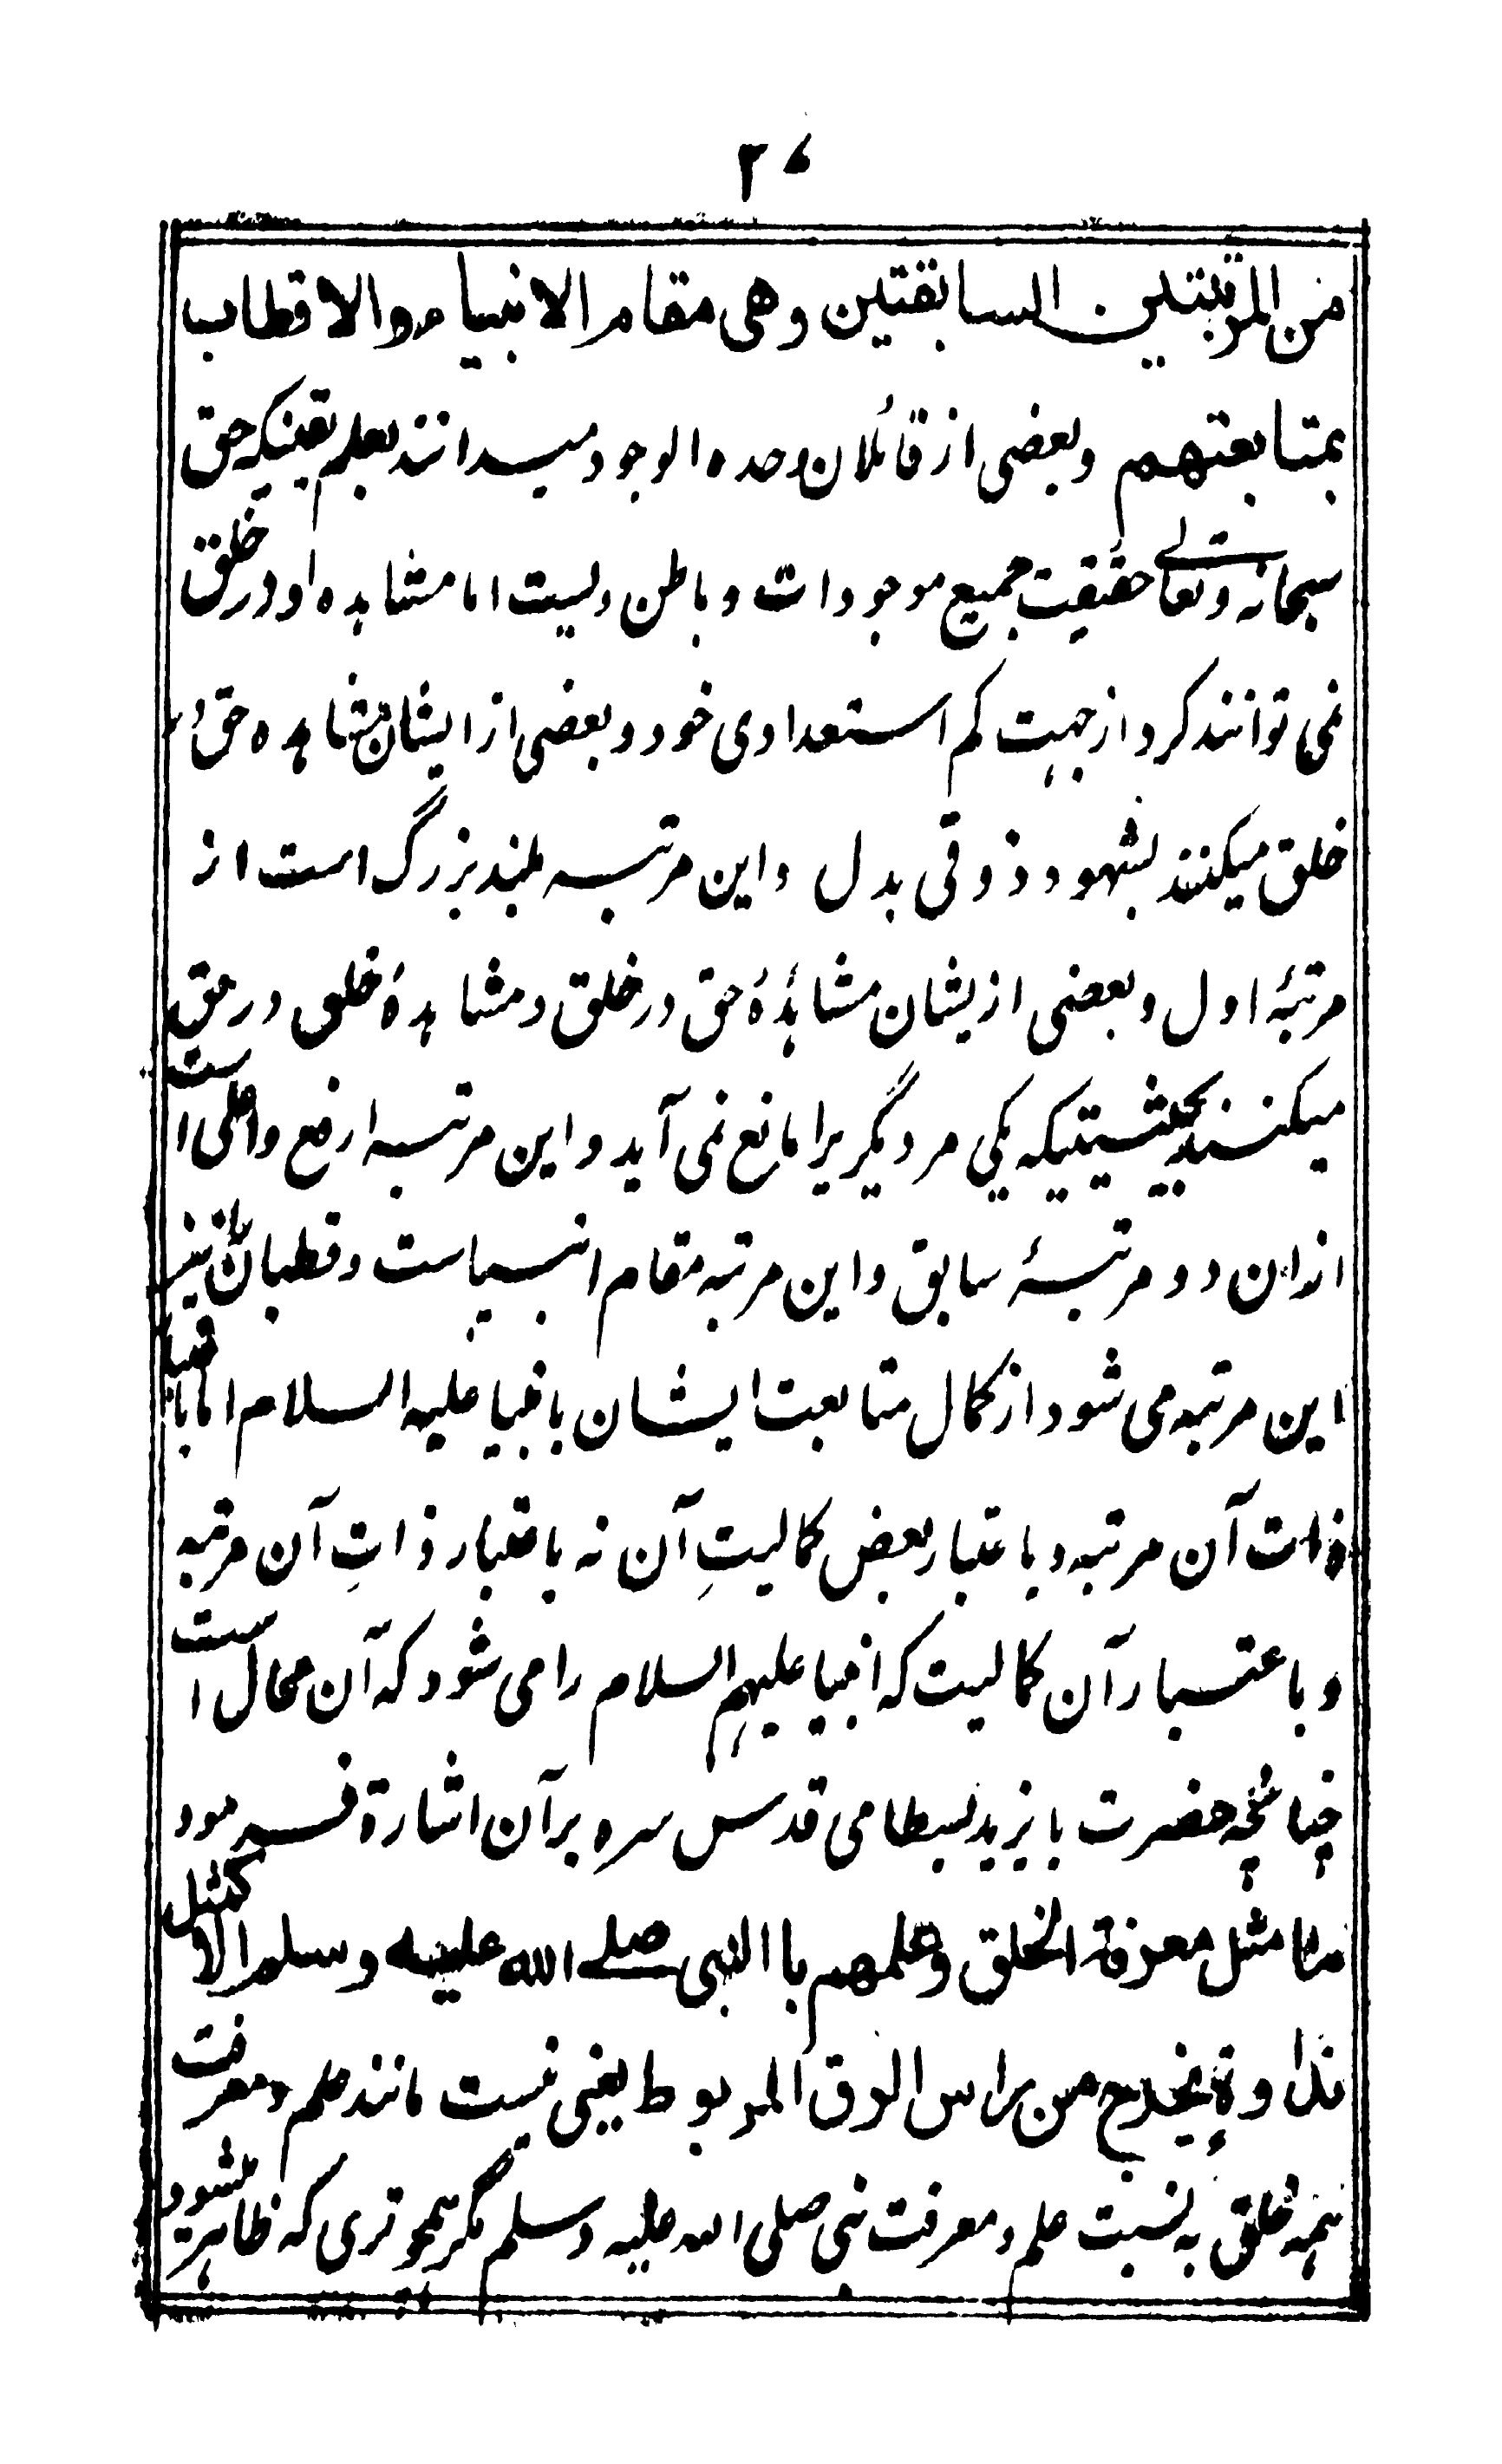 من المرتبتین السابقتین وهی مقام الانبیاء والاقطاب
بمتابعتهم وبعضی از قائلان وحده الوجود میدانند بعلم یقینکه حق
سبحانه وتعالے حقیقت جمیع موجودات و باطن ولیست اما مشاهده او در خلق
نمی توانند کرد از جهت کم استعدادی خود و بعضی از ایشان مشاهده حق
خلق میکنند بشهود ذوقی بدل واین مرتبه بلند بزرگ است از
مرتبهٔ اول و بعضی ازیشان مشاهدهٔ حق در خلق و مشاهدهٔ خلق در حق
میکنند بحیثیتیکه یکی مر دیگریرا مانع نمی آید واین مرتبه ارفع واعلی است
ازان دو مرتبهٔ سابق واین مرتبه مقام انبیاست و قطبان را نیز
این مرتبه می شود از کمال متابعت ایشان بانبیا علیه السلام اما با
ذات آن مرتبه و باعتبار بعض کمالیتِ آن نه باعتبار ذاتِ آن مرتبه
و باعتبار آن کمالیت که انبیا علیهم السلام را می شود که آن محال است
چنانچه حضرت بایزید بسطامی قدس سره برآن اشارة فرمود
ما مثل معرفة الخلق وعلمهم باالنبی صلے الله علیه وسلم الا کمثل
نداوة یخرج من راس الزق المربوط یعنی نیست مانند علم و معرفت
همه خلق به نسبت علم و معرفت نبی صلی الله علیه وسلم مگر همچو تری که ظاهر میشود